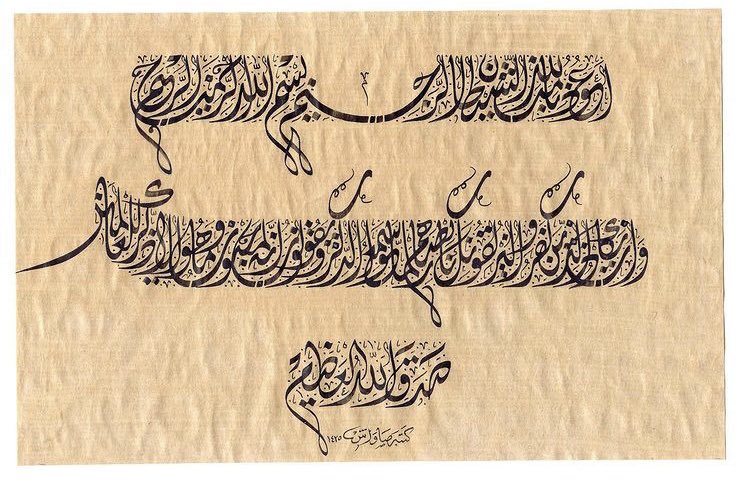 أعوذ بالله من الشيطان الرجيم بسم الله الرحمن الرحيم
وإن يكاد الذين كفروا ليزلقونك بأبصارهم لما سمعوا الذكر ويقولون إنه لمجنون وما هو إلا ذكر للعالمين
صدق الله العظيم
كتبه صاواش ١٤٢٥